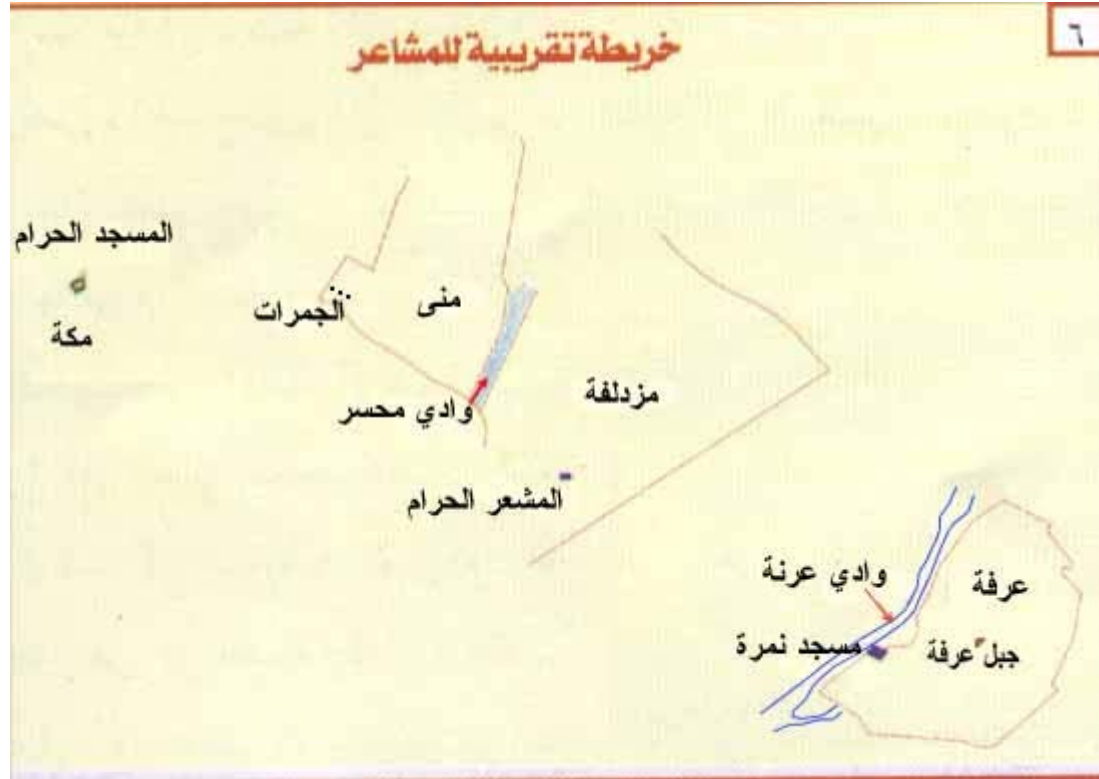 ٦
خريطة تقريبية للمشاعر
المسجد الحرام
مكة
منى
الجمرات
مزدلفة
وادي محسر
المشعر الحرام
وادي عرنة
عرفة
مسجد نمرة
جبل عرفة